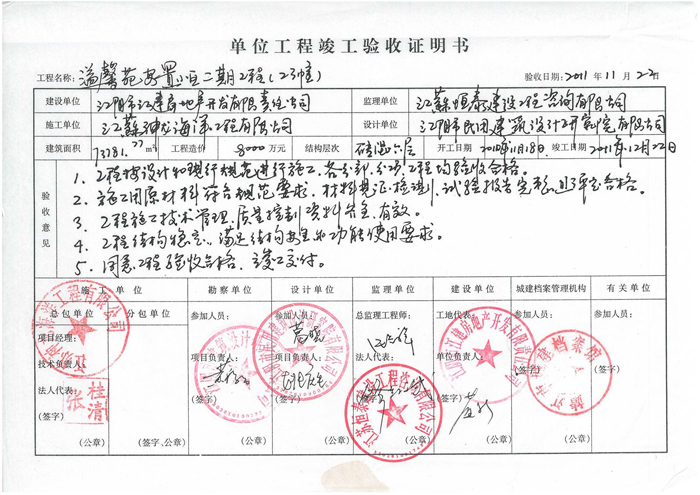 单位工程竣工验收证明书
工程名称: 溢馨苑安置小区二期工程(23幢) 验收日期: 2011年11月22日
建设单位 江阴市江建房地产开发有限责任公司 监理单位 江苏恒泰建设工程咨询有限公司
施工单位 江苏神龙海洋工程有限公司 设计单位 江阴市民用建筑设计研究院有限公司
建筑面积 工程造价 8000万元 结构层次 砖混六层 开工日期 竣工日期 2011年12月22日
验收意见
1. 工程按设计和现行规范进行施工,各分部分项工程均验收合格。
2. 施工用原材料符合规范要求,材料质证、检测、试验报告完整
3. 工程施工技术管理、质量控制资料齐全、有效。
4. 工程结构稳定,满足结构安全和功能使用要求。
5. 同意工程验收合格,竣工交付。
施工单位 勘察单位 设计单位 监理单位 建设单位 城建档案管理机构 有关单位
总包单位 分包单位 参加人员: 参加人员: 总监理工程师: 工地代表: 参加人员: 参加人员:
项目经理:
技术负责人: 项目负责人: 项目负责人: 法人代表: 单位负责人:
法人代表: (签字) (签字) (签字) (签字)
(签字)
(公章) (签字、公章) (公章) (公章) (公章) (公章) (公章) (公章)
桂清
江苏恒泰建设工程咨询有限公司